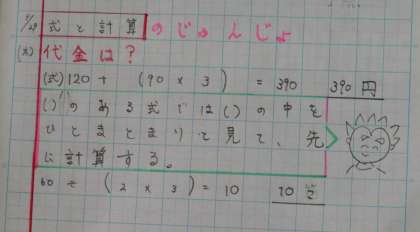 5/29 式と計算のじゅんじょ
(木) 代金は?
(式) 120 + (90 × 3) = 390 390円
( )のある式では( )の中を
ひとまとまりと見て、先
に計算する。
60 ÷ (2 × 3) = 10 10